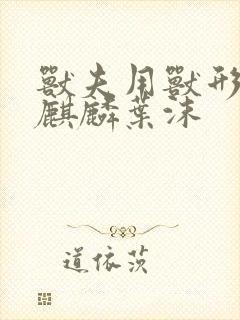 獸夫用獸形
麒麟葉沫
道依茨